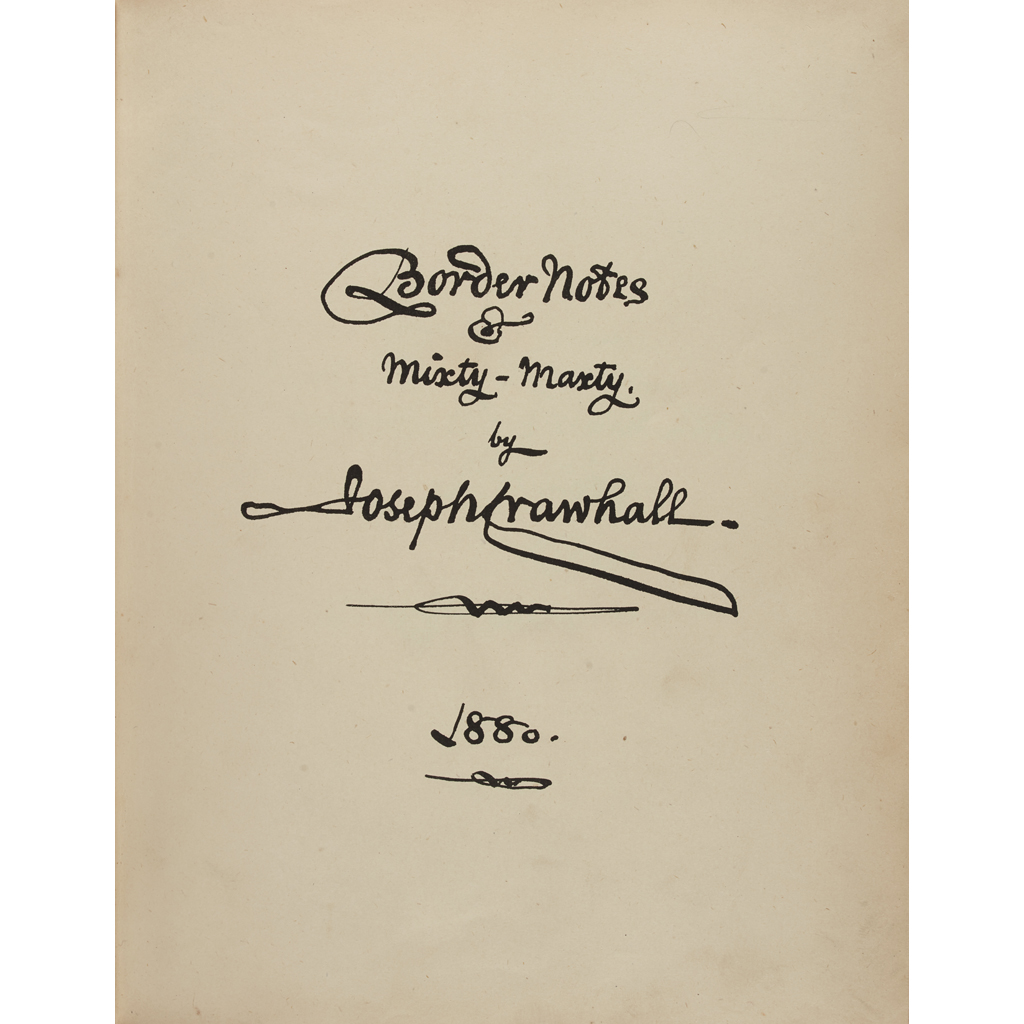 Border Notes
&
Mixty-Maxty.
by
Joseph Crawhall.
1880.